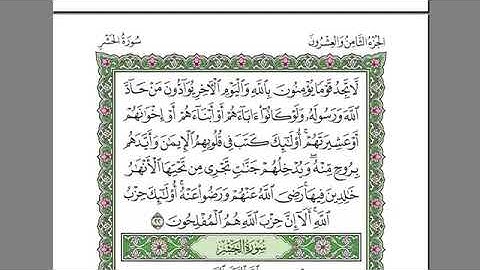 الجزء الثامن والعشرون
سورة الحشر
لَّا تَجِدُ قَوْمًا يُؤْمِنُونَ بِٱللَّهِ وَٱلْيَوْمِ ٱلْءَاخِرِ يُوَآدُّونَ مَنْ حَآدَّ
ٱللَّهَ وَرَسُولَهُۥ وَلَوْ كَانُوٓا۟ ءَابَآءَهُمْ أَوْ أَبْنَآءَهُمْ أَوْ إِخْوَٰنَهُمْ
أَوْ عَشِيرَتَهُمْ ۚ أُو۟لَٰٓئِكَ كَتَبَ فِى قُلُوبِهِمُ ٱلْإِيمَٰنَ وَأَيَّدَهُم
بِرُوحٍ مِّنْهُ ۖ وَيُدْخِلُهُمْ جَنَّٰتٍ تَجْرِى مِن تَحْتِهَا ٱلْأَنْهَٰرُ
خَٰلِدِينَ فِيهَا ۚ رَضِىَ ٱللَّهُ عَنْهُمْ وَرَضُوا۟ عَنْهُ ۚ أُو۟لَٰٓئِكَ حِزْبُ
ٱللَّهِ ۚ أَلَآ إِنَّ حِزْبَ ٱللَّهِ هُمُ ٱلْمُفْلِحُونَ ٢٢
سورة الحشر